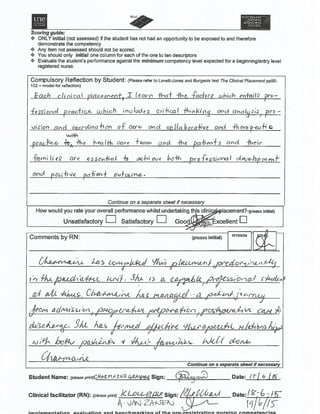 une
Scoring guide:
❖ ONLY initial (not assessed) if the student has not had an opportunity to be exposed to and therefore
demonstrate the competency
❖ Any item not assessed should not be scored.
❖ You should only initial one column for each of the one to ten descriptors
❖ Evaluate the student's performance against the minimum competency level expected for a beginning/entry level
registered nurse.
Compulsory Reflection by Student: (Please refer to Levett-Jones and Burgeois text The Clinical Placement pp95-
102 – model for reflection)
Each clinical placement, I learn that the factors which entails pro-
fessional practice which includes critical thinking and analysis, pro-
vision and coordination of care and collaborative and therapeutic
with
practice to the health care team and the patients and their
families are essential to achieve both professional development
and positive patient outcome.
Continue on a separate sheet if necessary
How would you rate your overall performance whilst undertaking this clinical placement? (please initial)
Unsatisfactory Satisfactory Good Excellent
Comments by RN: (please initial)
Charmaine has completed this placement predominently
in the paediatric unit. She is a capable, professional student
at all times. Charmaine has managed a patient journey
from admission, preoperative preparation, postoperative care to
discharge. She has formed effective therapeutic relationships
with both patients & their families. Well done
Charmaine
Continue on a separate sheet if necessary
Student Name: (please print) CHARMAINE Sign: Date: 17/6/15
Clinical facilitator (RN): (please print) Sign: Date: 18-6-15
A. VAN 19/6/15
Implementation, evaluation and benchmarking of the pre-registration nursing competencies